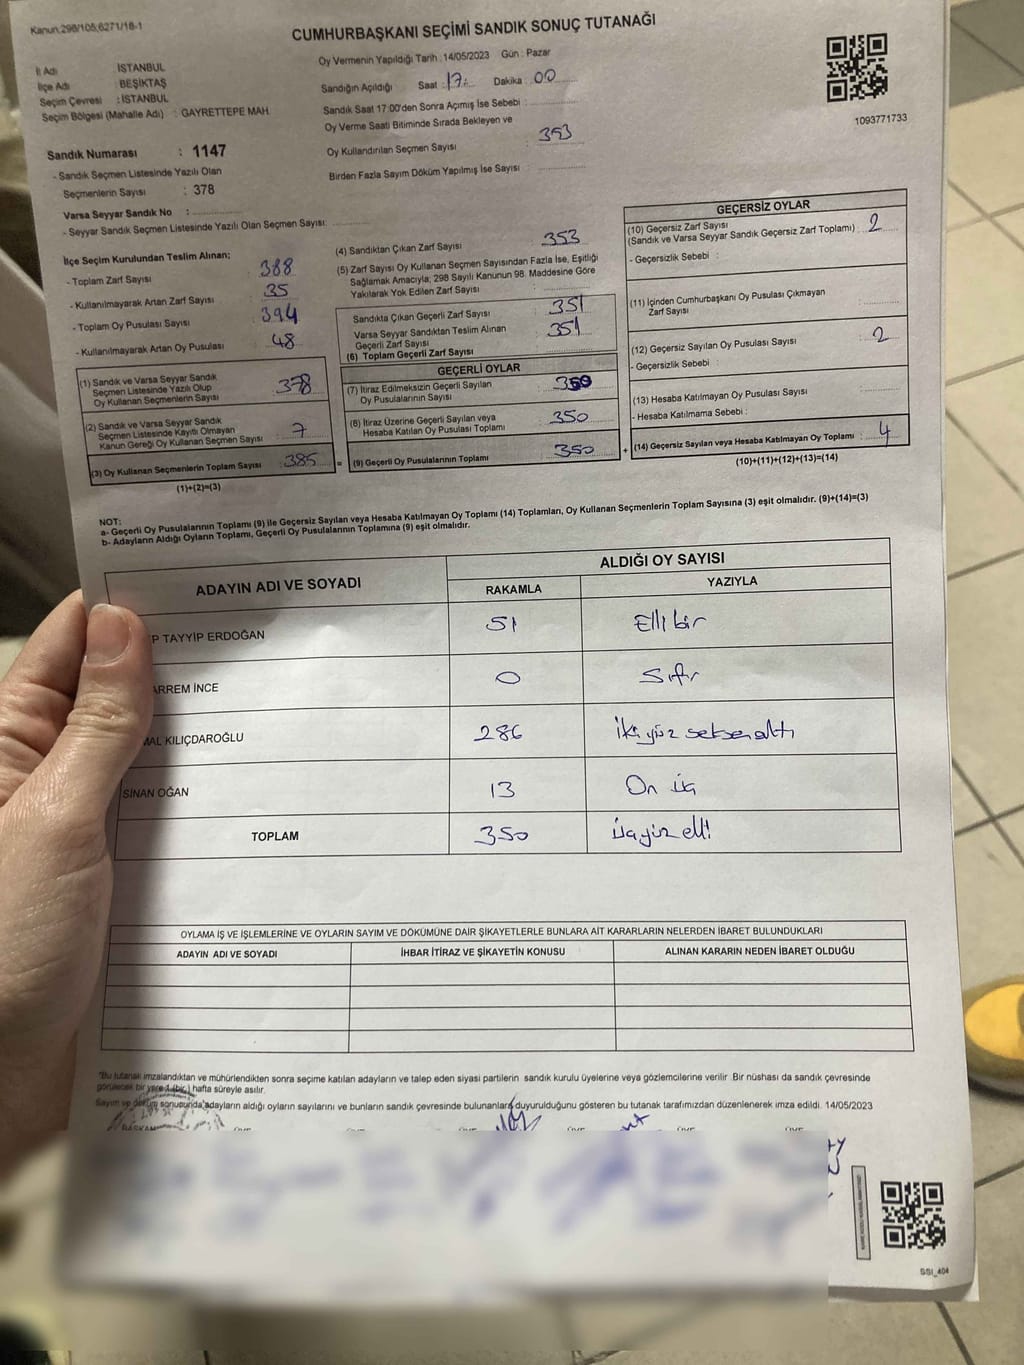 Kanun:298/105;6271/18-1
CUMHURBAŞKANI SEÇİMİ SANDIK SONUÇ TUTANAĞI
İl Adı : İSTANBUL
İlçe Adı : BEŞİKTAŞ
Seçim Çevresi : İSTANBUL
Seçim Bölgesi (Mahalle Adı) : GAYRETTEPE MAH
Sandık Numarası : 1147
- Sandık Seçmen Listesinde Yazılı Olan
Seçmenlerin Sayısı : 378
Varsa Seyyar Sandık No :
- Seyyar Sandık Seçmen Listesinde Yazılı Olan Seçmen Sayısı:
Oy Vermenin Yapıldığı Tarih :14/05/2023 Gün : Pazar
Sandığın Açıldığı Saat :17: Dakika :00
Sandık Saat 17:00'den Sonra Açımış İse Sebebi :
Oy Verme Saati Bitiminde Sırada Bekleyen ve
Oy Kullandırılan Seçmen Sayısı : 353
Birden Fazla Sayım Döküm Yapılmış İse Sayısı :
1093771733
İlçe Seçim Kurulundan Teslim Alınan;
- Toplam Zarf Sayısı : 388
- Kullanılmayarak Artan Zarf Sayısı : 35
- Toplam Oy Pusulası Sayısı : 394
- Kullanılmayarak Artan Oy Pusulası : 48
(1) Sandık ve Varsa Seyyar Sandık
Seçmen Listesinde Yazılı Olup
Oy Kullanan Seçmenlerin Sayısı : 378
(2) Sandık ve Varsa Seyyar Sandık
Seçmen Listesinde Kayıtlı Olmayan
Kanun Gereği Oy Kullanan Seçmen Sayısı : 7
(3) Oy Kullanan Seçmenlerin Toplam Sayısı : 385
(1)+(2)=(3)
(4) Sandıktan Çıkan Zarf Sayısı : 353
(5) Zarf Sayısı Oy Kullanan Seçmen Sayısından Fazla İse, Eşitliği
Sağlamak Amacıyla; 298 Sayılı Kanunun 98. Maddesine Göre
Yakılarak Yok Edilen Zarf Sayısı :
Sandıkta Çıkan Geçerli Zarf Sayısı : 351
Varsa Seyyar Sandıktan Teslim Alınan
Geçerli Zarf Sayısı : 351
(6) Toplam Geçerli Zarf Sayısı :
GEÇERLİ OYLAR
(7) İtiraz Edilmeksizin Geçerli Sayılan
Oy Pusulalarının Sayısı : 350
(8) İtiraz Üzerine Geçerli Sayılan veya
Hesaba Katılan Oy Pusulası Toplamı : 350
= (9) Geçerli Oy Pusulalarının Toplamı : 350
GEÇERSİZ OYLAR
(10) Geçersiz Zarf Sayısı
(Sandık ve Varsa Seyyar Sandık Geçersiz Zarf Toplamı) : 2
- Geçersizlik Sebebi :
(11) İçinden Cumhurbaşkanı Oy Pusulası Çıkmayan
Zarf Sayısı :
(12) Geçersiz Sayılan Oy Pusulası Sayısı : 2
- Geçersizlik Sebebi :
(13) Hesaba Katılmayan Oy Pusulası Sayısı :
- Hesaba Katılmama Sebebi :
+ (14) Geçersiz Sayılan veya Hesaba Katılmayan Oy Toplamı : 4
(10)+(11)+(12)+(13)=(14)
NOT:
a- Geçerli Oy Pusulalarının Toplamı (9) ile Geçersiz Sayılan veya Hesaba Katılmayan Oy Toplamı (14) Toplamları, Oy Kullanan Seçmenlerin Toplam Sayısına (3) eşit olmalıdır. (9)+(14)=(3)
b- Adayların Aldığı Oyların Toplamı, Geçerli Oy Pusulalarının Toplamına (9) eşit olmalıdır.
ADAYIN ADI VE SOYADI ALDIĞI OY SAYISI
RAKAMLA YAZIYLA
P TAYYİP ERDOĞAN 51 Elli bir
ARREM İNCE 0 Sıfır
MAL KILIÇDAROĞLU 286 İki yüz seksen altı
SİNAN OĞAN 13 On üç
TOPLAM 350 üçyüz elli
OYLAMA İŞ VE İŞLEMLERİNE VE OYLARIN SAYIM VE DÖKÜMÜNE DAİR ŞİKAYETLERLE BUNLARA AİT KARARLARIN NELERDEN İBARET BULUNDUKLARI
ADAYIN ADI VE SOYADI İHBAR İTİRAZ VE ŞİKAYETİN KONUSU ALINAN KARARIN NEDEN İBARET OLDUĞU
"Bu tutanak imzalandıktan ve mühürlendikten sonra seçime katılan adayların ve talep eden siyasi partilerin sandık kurulu üyelerine veya gözlemcilerine verilir. Bir nüshası da sandık çevresinde
görülecek bir yere 1 (bir) hafta süreyle asılır.
Sayım ve döküm sonusunda adayların aldığı oyların sayılarını ve bunların sandık çevresinde bulunanlara duyurulduğunu gösteren bu tutanak tarafımızdan düzenlenerek imza edildi. 14/05/2023
BAŞKAN
SSI_404